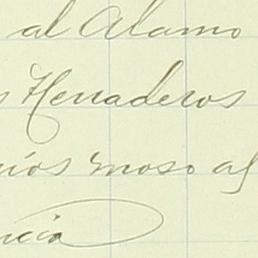 al Alamo
s Herraderos
ríos moso al
ncia